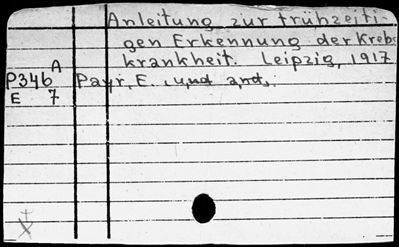 Anleitung zur frühzeiti-
gen Erkennung der Krebs
krankheit. Leipzig, 1917
A
P346 Payr, E. und and.
E 7